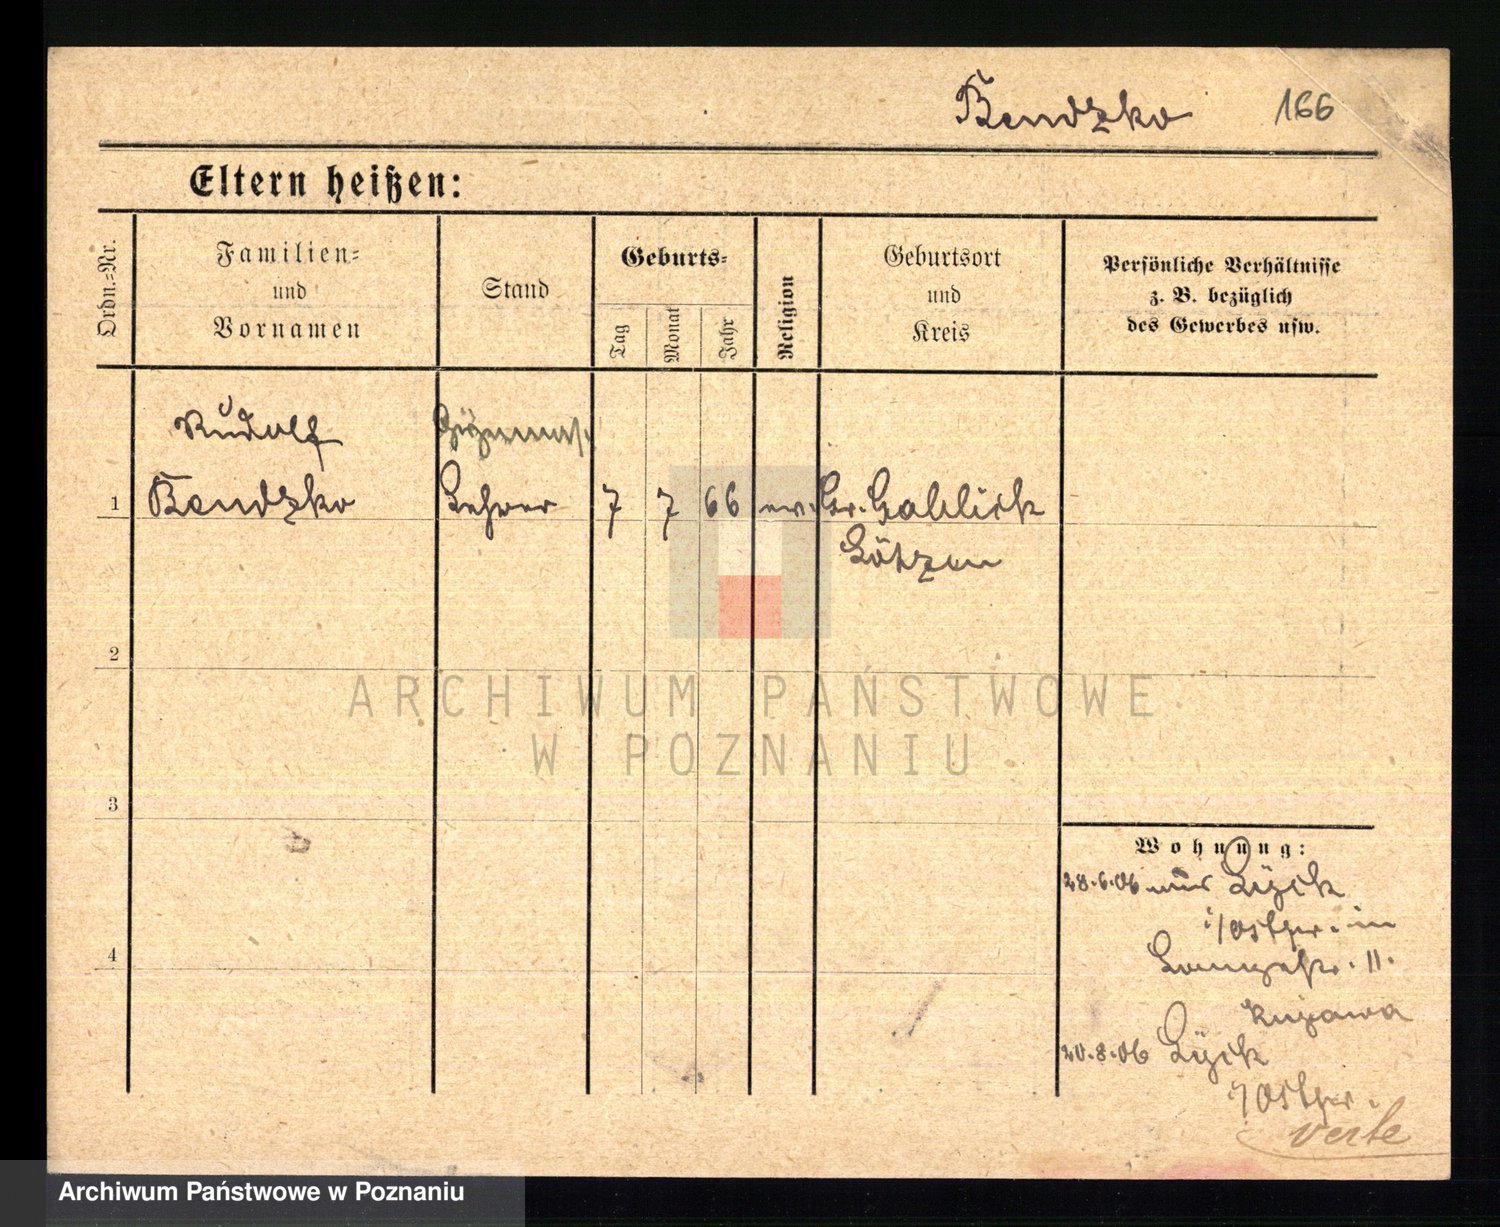 Bendzko 166
Eltern heißen:
Ordn.=Nr.
Familien=
und
Vornamen
Stand
Geburts=
Tag
Monat
Jahr
Religion
Geburtsort
und
Kreis
Persönliche Verhältnisse
z. B. bezüglich
des Gewerbes usw.
Rudolf
1 Bendzko Lehrer 7 7 66 ev. Gr. Gablick
Lötzen
2
3
4
Wohnung:
28.6.06 aus Lyck
i/Ostpr. in
11.
Kujawa
20.8.06 Lyck
i/Ostpr.
verte
ARCHIWUM PAŃSTWOWE
W POZNANIU
Archiwum Państwowe w Poznaniu